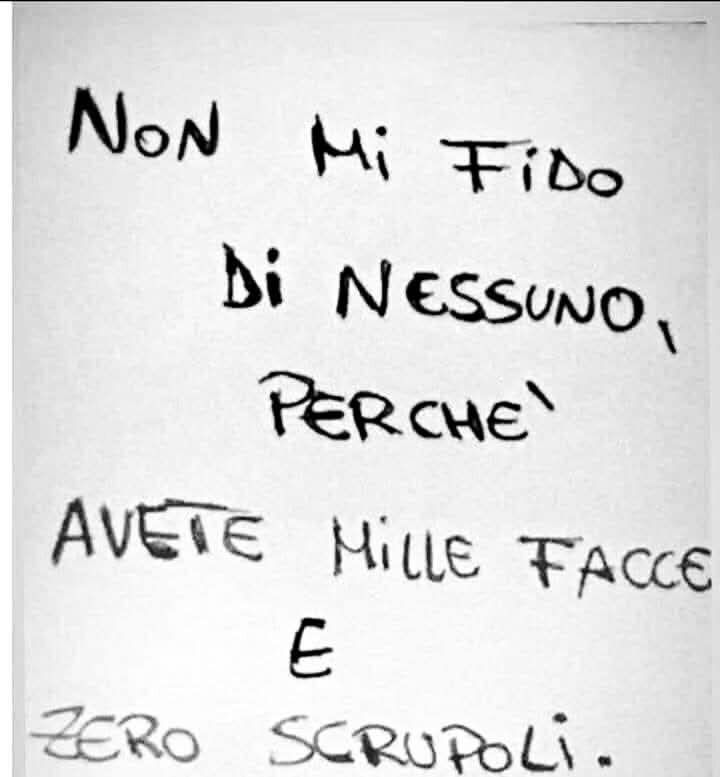 NON MI FIDO
DI NESSUNO,
PERCHE`
AVETE MILLE FACCE
E
ZERO SCRUPOLI.